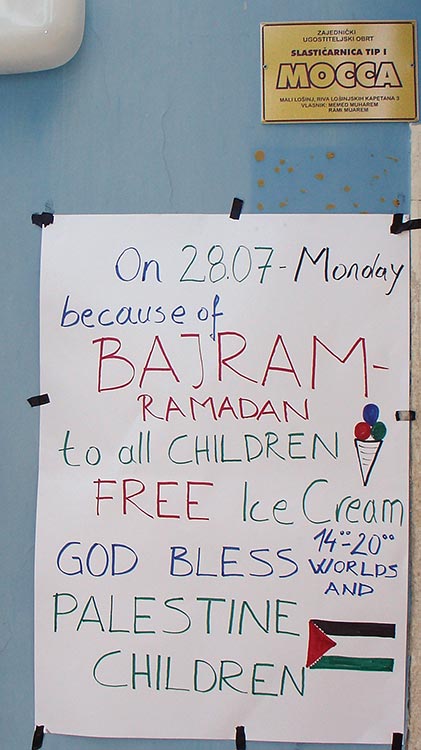 ZAJEDNIČKI
UGOSTITELJSKI OBRT
SLASTIČARNICA TIP I
MOCCA
MALI LOŠINJ, RIVA LOŠINJSKIH KAPETANA 3
VLASNIK: MEMED MUHAREM
RAMI MUAREM
On 28.07 - Monday
because of
BAJRAM-
RAMADAN
to all CHILDREN
FREE Ice Cream
14°°-20°°
GOD BLESS WORLDS
AND
PALESTINE
CHILDREN